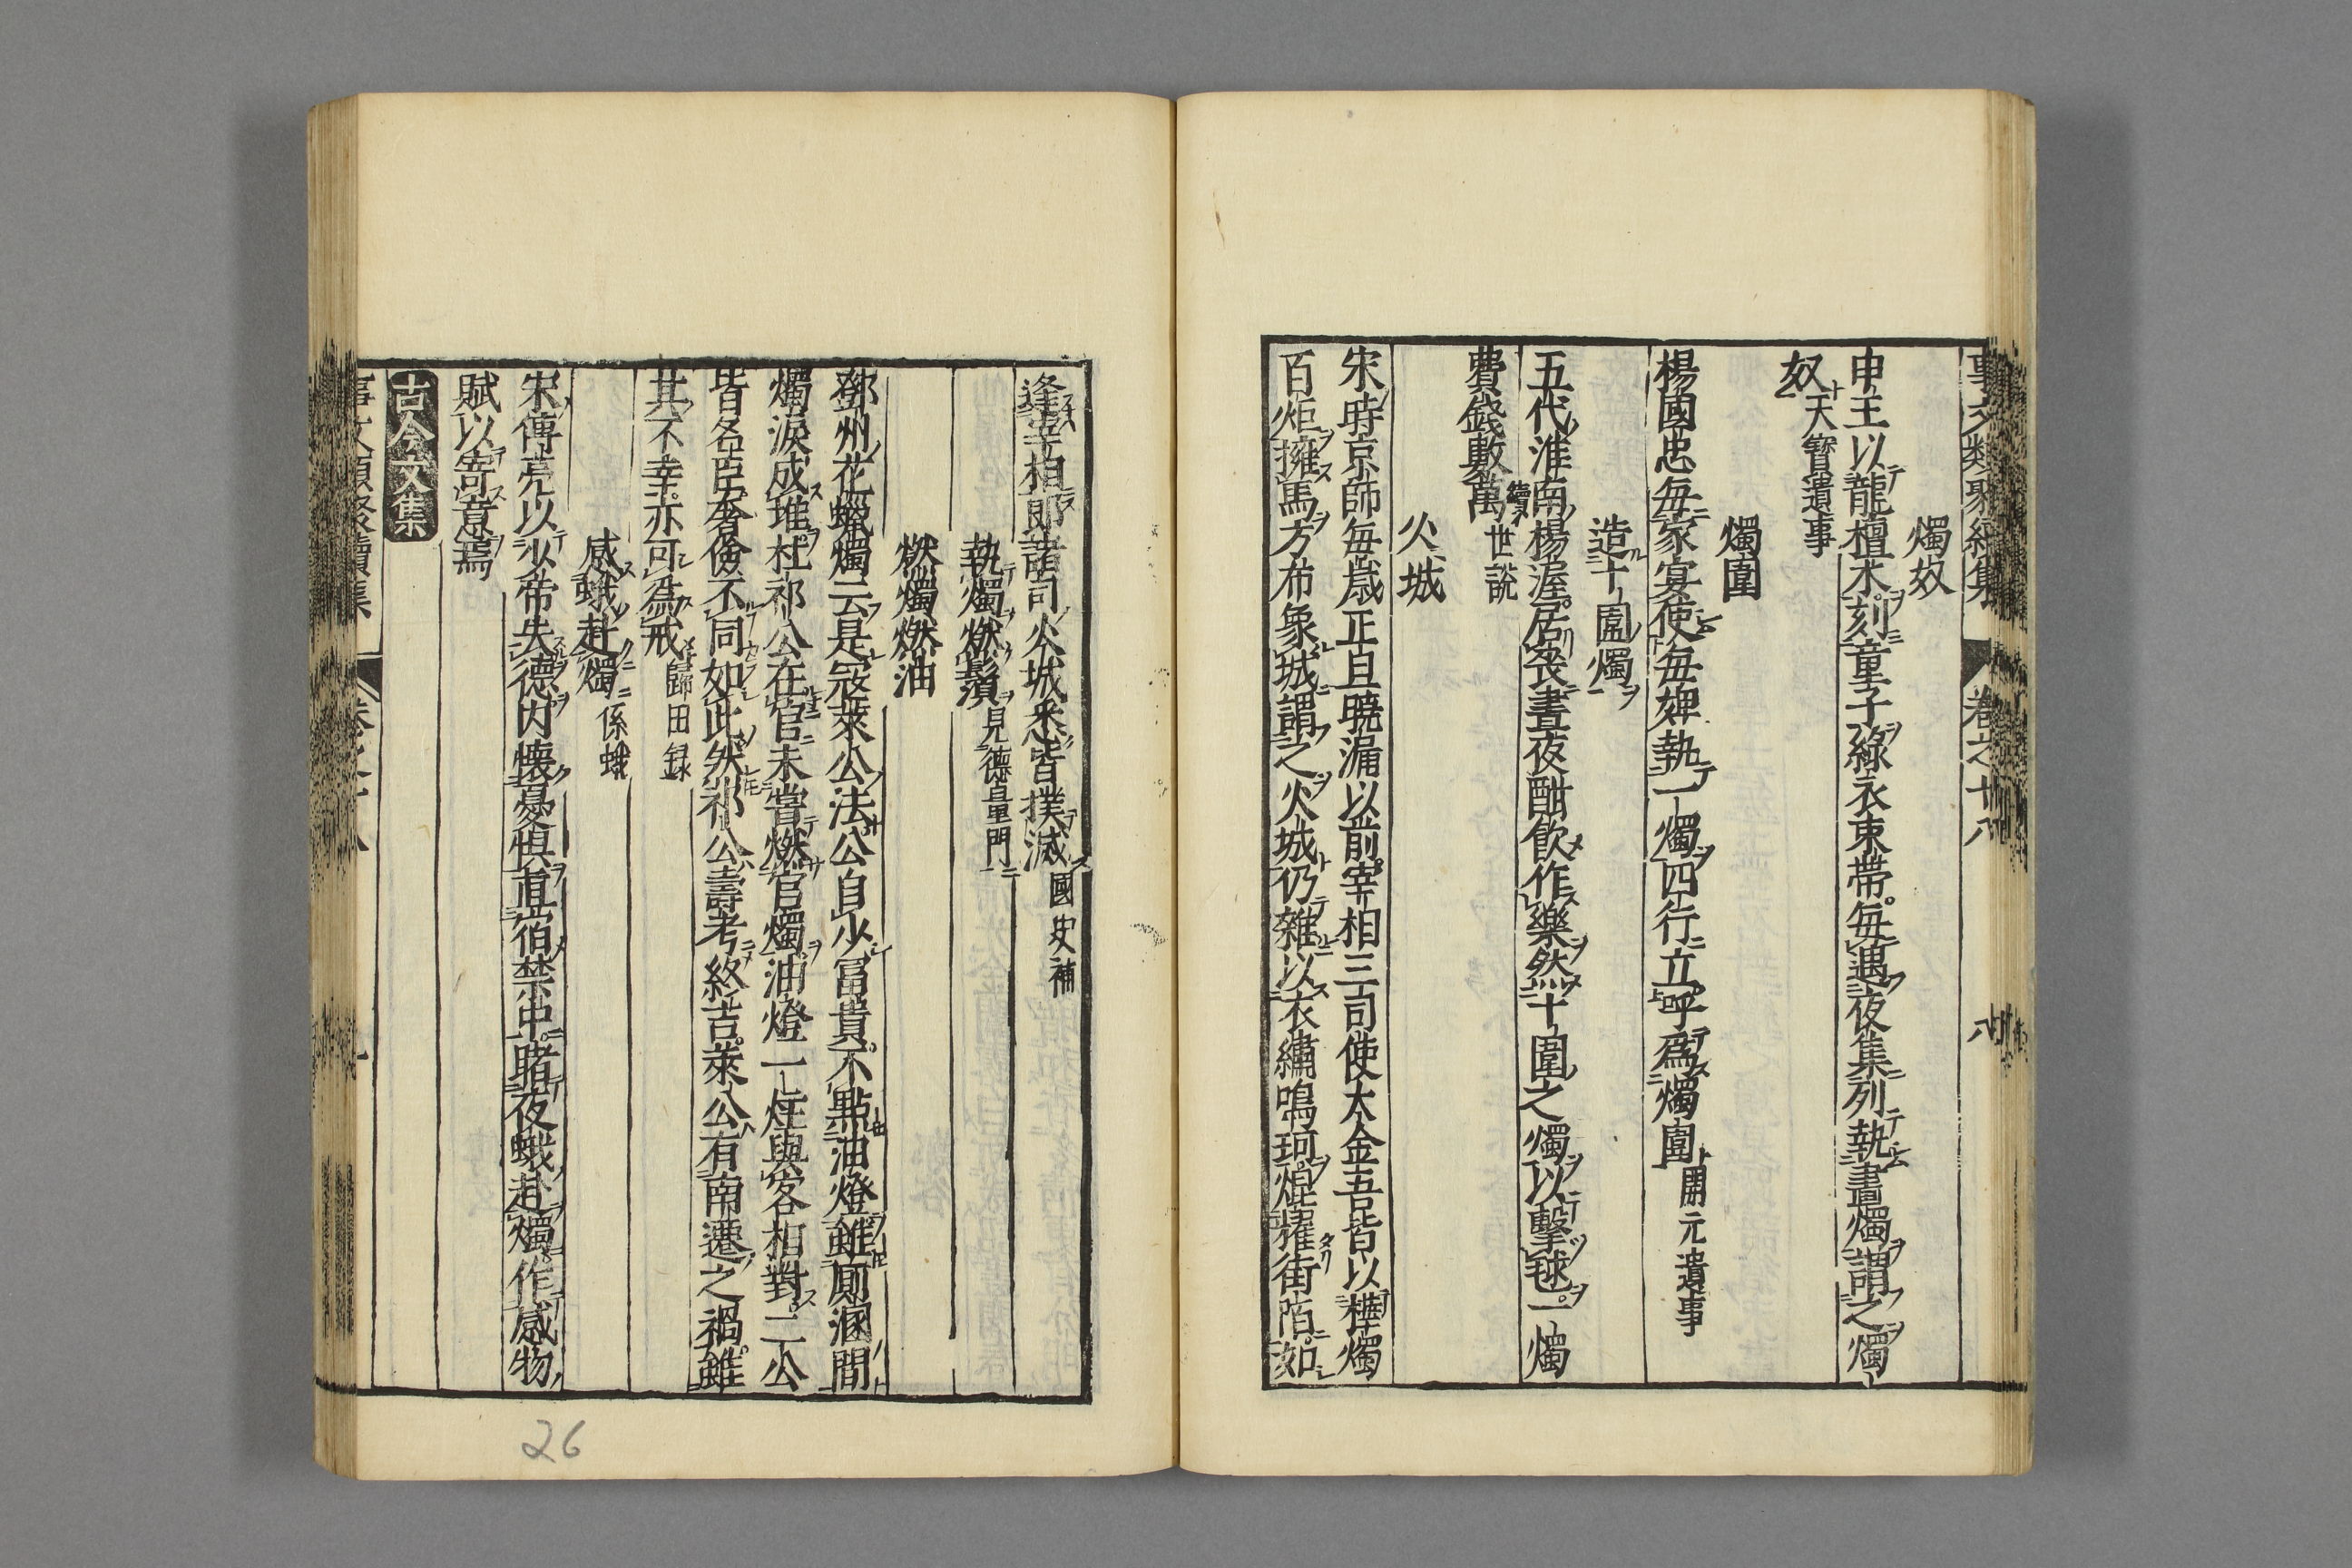 事文類聚續集 卷之十八 八
燭奴
申王以龍檀木刻童子綠衣束帶。每遇夜集列執畫燭謂之燭
奴天寶遺事
燭圍
楊國忠每家宴使每婢執一燭四行立呼爲燭圍開元遺事
造十圍燭
五代淮南楊渥居喪晝夜酣飲作樂然十圍之燭以擊毬。一燭
費錢數萬續世說
火城
宋時京師每歲正旦曉漏以前。宰相三司使大金吾皆以樺燭
百炬擁馬方布象城謂之火城仍雜以衣繡鳴珂。焜耀街陌。如
逢宰相郎諸司火城悉皆撲滅國史補
執燭燃鬚見德量門
燃燭燃油
鄧州花蠟燭云是寇萊公法公自少富貴。不點油燈雖厠溷間
燭淚成堆。杜祁公在官未嘗燃官燭油燈一炷與客相對。二公
皆名臣奢儉不同如此然祁公壽考終吉。萊公有南遷之禍。雖
其不幸。亦可爲戒歸田録
感蛾赴燭係蛾
宋傅亮以少帝失德。内懷憂惧直宿禁中。睹夜蛾赴燭。作感物
賦以寄意焉
古今文集
事文類聚續集